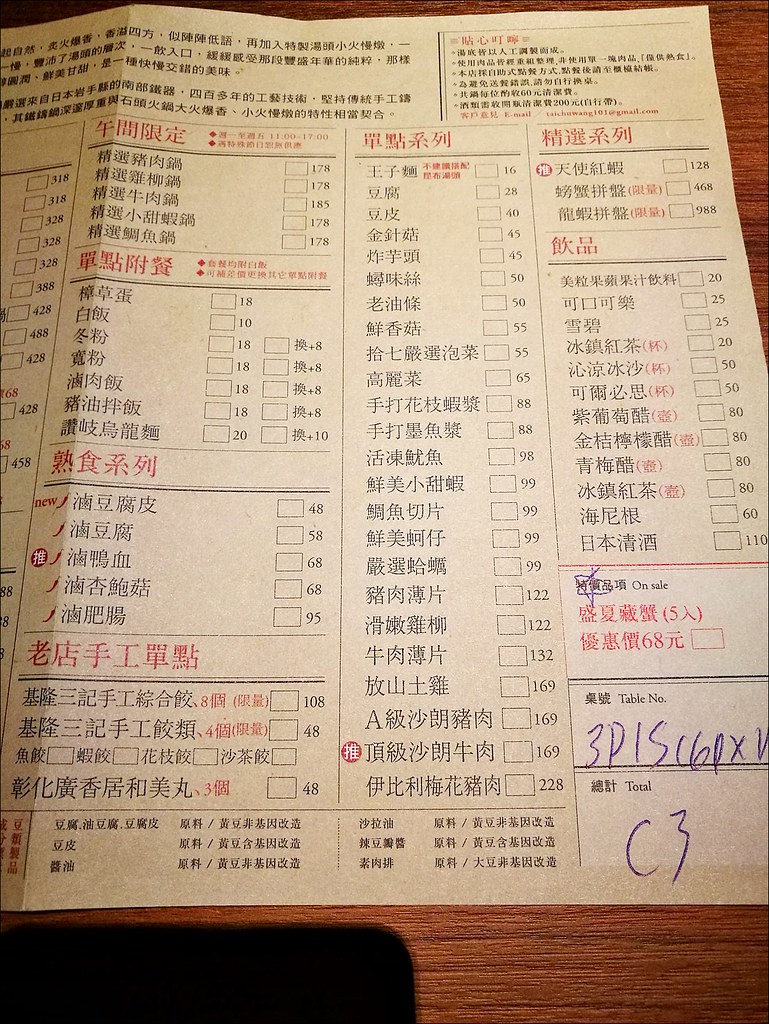 起自然，炙火爆香，香溢四方，似陣陣低語，再加入特製湯頭小火慢燉，一
一慢，豐沛了湯頭的層次，一飲入口，緩緩感受那段豐盛年華的純粹，那樣
圓潤、鮮美甘甜，是一種快慢交錯的美味。
嚴選來自日本岩手縣的南部鐵器，四百多年的工藝技術，堅持傳統手工鑄
，其鐵鑄鍋深邃厚重與石頭火鍋大火爆香、小火慢燉的特性相當契合。
貼心叮嚀
湯底皆以人工調製而成。
使用肉品皆經重組整理，非使用單一塊肉品，「僅供熟食」。
本店採自助式點餐方式，點餐後請至櫃檯結帳。
為避免送餐錯誤，請勿自行換桌。
共鍋每位酌收60元清潔費。
酒類需收開瓶清潔費200元(自行帶)。
客戶意見 E-mail taichuwang101@gmail.com
318
318
328
328
328
388
鍋 428
488
428
價68
428
68
458
午間限定
◆週一至週五 11:00-17:00
◆遇特殊節日恕無供應
精選豬肉鍋 178
精選雞柳鍋 178
精選牛肉鍋 185
精選小甜蝦鍋 178
精選鯛魚鍋 178
單點附餐
◆套餐均附白飯
◆可補差價更換其它單點附餐
樟草蛋 18
白飯 10
冬粉 18 換+8
寬粉 18 換+8
滷肉飯 18 換+8
豬油拌飯 18 換+8
讚岐烏龍麵 20 換+10
熟食系列
new 滷豆腐皮 48
滷豆腐 58
推 滷鴨血 68
滷杏鮑菇 68
滷肥腸 95
老店手工單點
基隆三記手工綜合餃、8個 (限量) 108
基隆三記手工餃類、4個(限量) 48
魚餃 蝦餃 花枝餃 沙茶餃
彰化廣香居和美丸、3個 48
單點系列
王子麵 不建議搭配昆布湯頭 16
豆腐 28
豆皮 40
金針菇 45
炸芋頭 45
蟳味絲 50
老油條 50
鮮香菇 55
拾七嚴選泡菜 55
高麗菜 65
手打花枝蝦漿 88
手打墨魚漿 88
活凍魷魚 98
鮮美小甜蝦 99
鯛魚切片 99
鮮美蚵仔 99
嚴選蛤蠣 99
豬肉薄片 122
滑嫩雞柳 122
牛肉薄片 132
放山土雞 169
A級沙朗豬肉 169
推 頂級沙朗牛肉 169
伊比利梅花豬肉 228
精選系列
推 天使紅蝦 128
螃蟹拼盤(限量) 468
龍蝦拼盤(限量) 988
飲品
美粒果蘋果汁飲料 20
可口可樂 25
雪碧 25
冰鎮紅茶(杯) 20
沁涼冰沙(杯) 50
可爾必思(杯) 50
紫葡萄醋(壺) 80
金桔檸檬醋(壺) 80
青梅醋(壺) 80
冰鎮紅茶(壺) 80
海尼根 60
日本清酒 110
特價品項 On sale
盛夏藏蟹 (5入)
優惠價68元
桌號 Table No.
總計 Total
C3
豆腐.油豆腐.豆腐皮 原料 / 黃豆非基因改造
豆皮 原料 / 黃豆含基因改造
醬油 原料 / 黃豆非基因改造
沙拉油 原料 / 黃豆非基因改造
辣豆瓣醬 原料 / 黃豆含基因改造
素肉排 原料 / 大豆非基因改造